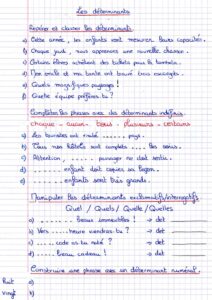 Les déterminants
Repérer et classer les déterminants.
a) Cette année, les enfants vont mesurer leurs capacités.
b) Chaque jour, nous apprenons une nouvelle chanson.
c) Certains élèves achètent des billets pour la tombola.
d) Mon oncle et ma tante ont trois
e) Quels magnifiques paysages !
f) Quelle équipe préférez-tu ?
Compléter les phrases avec des déterminants indéfinis.
chaque - aucun - tous - plusieurs - certains
a) Les touristes ont visité ...... pays.
b) Tous nos hôtels sont complets ...... les jours.
c) Attention, ...... passager ne doit sortir.
d) ...... enfant doit copier sa leçon.
e) ...... enfants sont très grands.
Manipuler les déterminants exclamatifs/interrogatifs
Quel / Quels / Quelle / Quelles
a) ...... beaux immeubles ! → dét
b) Vers ...... heure viendras-tu ? → dét
c) ...... as-tu noté ? → dét
d) ...... beau cadeau ! → dét
Construire une phrase avec un déterminant numéral.
huit a)
vingt b)